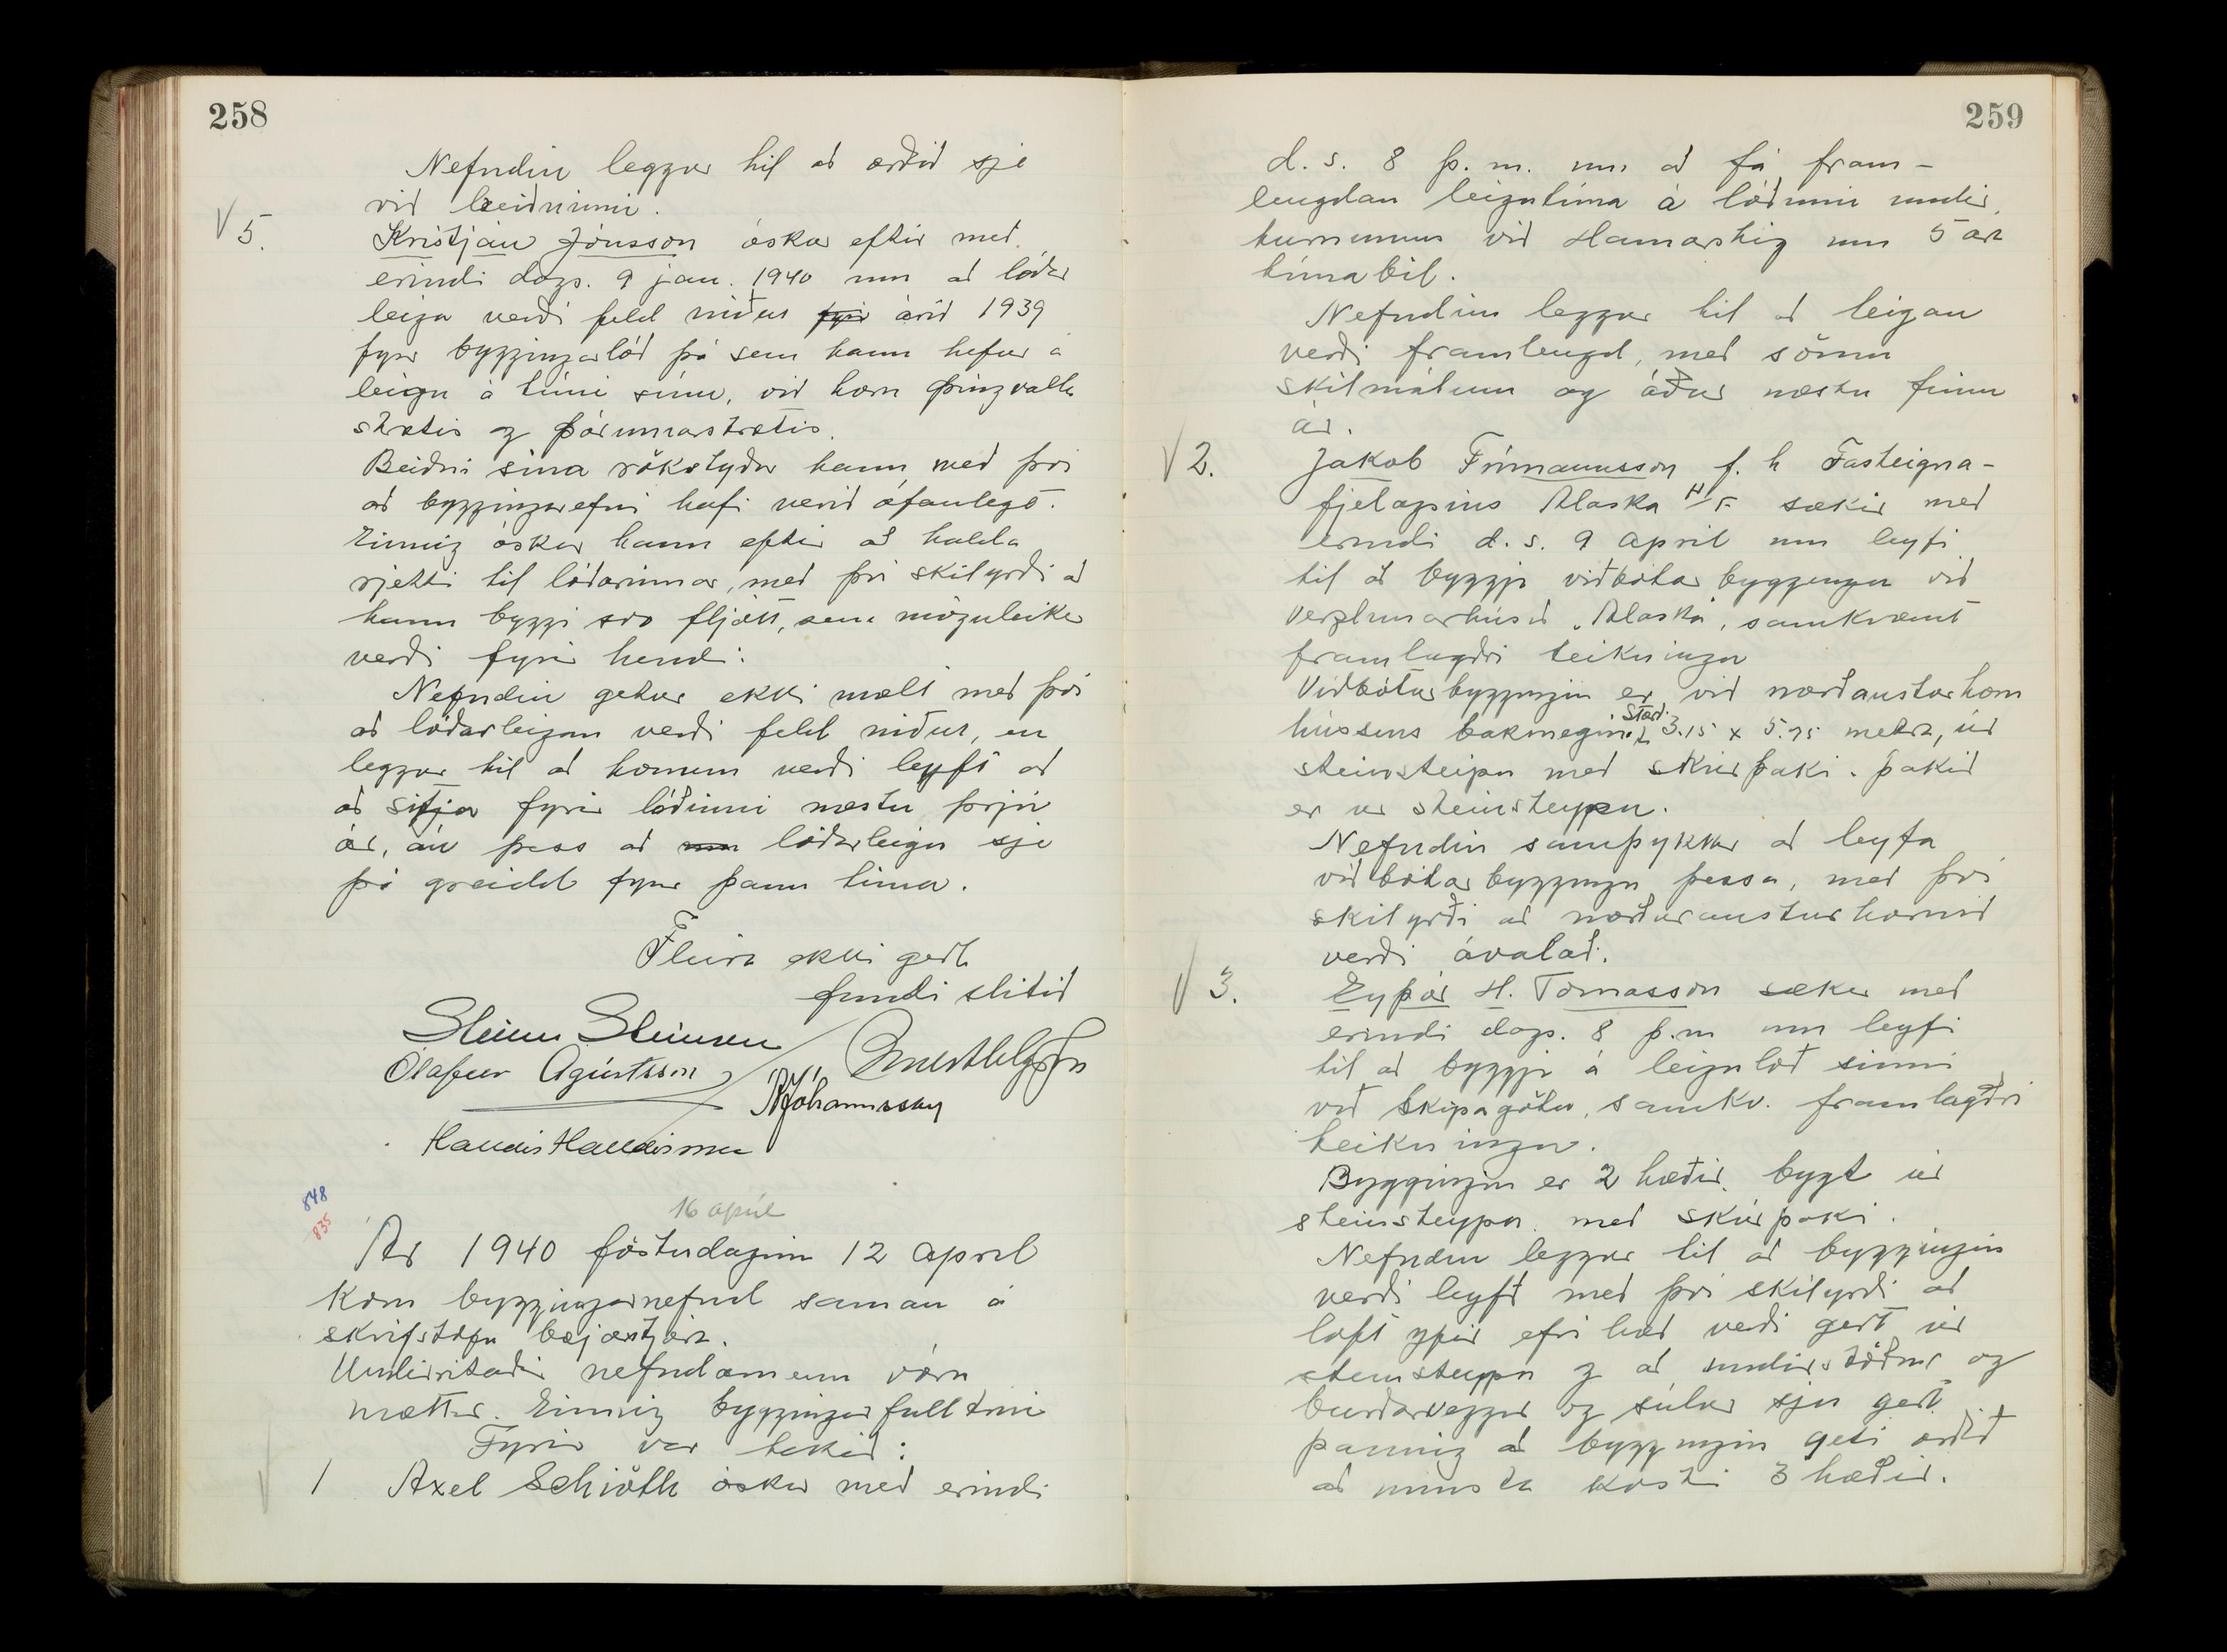 258
Nefndin leggur til að orðið sje
við beiðninni.
V 5.
Kristján Jónsson óskar eftir með
erindi dags. 9 jan. 1940 um að lóðar
leiga verði feld niður fyrir árið 1939
fyrir byggingarlóð þá sem hann hefur á
leigu á túni sínu, við horn Þingvalla
strætis og Þórunnarstrætis.
Beiðni sína rökstyður hann með því
að byggingarefni hafi verið ófanlegt.
Einnig óskar hann eftir að halda
rjetti til lóðarinnar, með því skilyrði að
hann byggi svo fljótt, sem möguleikar
verði fyrir hendi.
Nefndin getur ekki mælt með því
að lóðarleigan verði feld niður, en
leggur til að honum verði leyft að
að sitja fyrir lóðinni næstu þrjú
ár, án þess að um lóðarleigu sje
þá greidd fyrir þann tíma.
Fleira ekki gert
fundi slitið
Steinn Steinsen
Ólafur Ágústsson
Jóhannsson
Halldór Halldórsson
848
835
16 apríl
Ár 1940 föstudaginn 12 april
kom byggingarnefnd saman á
skrifstofu bæjarstjóra.
Undirritaðir nefndarmenn vóru
mættir. Einnig byggingarfulltrúi
Fyrir var tekið:
V 1 Axel Schiöth óskar með erindi
259
d. s. 8 þ. m. um að fá fram-
lengdan leigutíma á lóðinni undir
turninum við Hamarstíg um 5 ára
tímabil.
Nefndin leggur til að leigan
verði framlengd, með sömu
skilmálum og áður næstu fimm
ár.
V 2.
Jakob Frímannsson f. h Fasteigna-
fjelagsins Alaska H/F sækir með
erindi d. s. 9 april um leyfi
til að byggja viðbótar byggingu við
Verzlunarhúsið "Alaska", samkvæmt
framlagðri teikningu
Viðbótarbyggingin er við norðausturhorn
hússins bakmegin. Stærð 3.15 x 5.75 metra, úr
steinsteipu með skúrþaki. Þakið
er úr steinsteypu.
Nefndin samþykkir að leyfa
viðbótarbyggingu þessa, með því
skilyrði að norðausturhornið
verði ávalað.
V 3.
Eyþór H. Tómasson sækir með
erindi dags. 8 þ.m um leyfi
til að byggja á leigulóð sinni
við Skipagötu, samkv. framlagðri
teikningu.
Byggingin er 2 hæðir, bygt úr
steinsteypu með skúrþaki.
Nefndin leggur til að byggingin
verði leyfð með því skilyrði að
loft yfir efri hæð verði gert úr
steinsteypu og að undirstöður og
burðarveggir og súlur sjeu gert
þannig að byggingin geti orðið
að minsta kosti 3 hæðir.